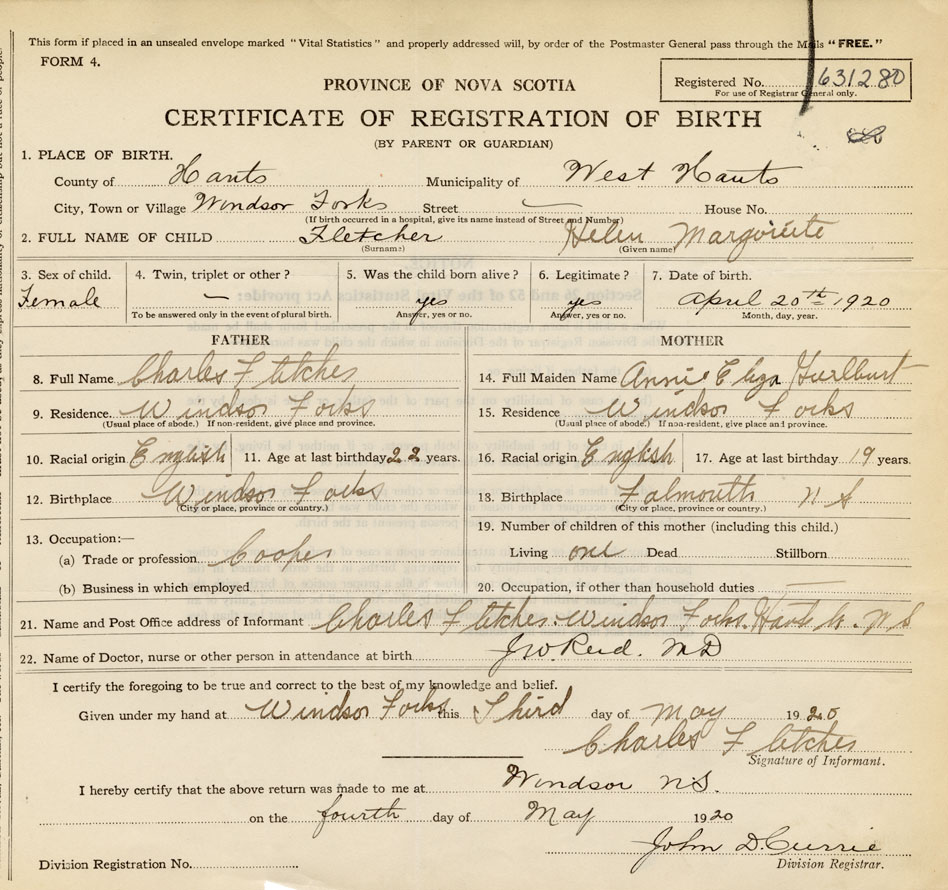 This form if placed in an unsealed envelope marked "Vital Statistics" and properly addressed will, by order of the Postmaster General pass through the Mails "FREE."
FORM 4.
Registered No. 631280
For use of Registrar General only.
PROVINCE OF NOVA SCOTIA
CERTIFICATE OF REGISTRATION OF BIRTH
(BY PARENT OR GUARDIAN)
1. PLACE OF BIRTH.
County of Hants Municipality of West Hants
City, Town or Village Windsor Forks Street — House No.
(If birth occurred in a hospital, give its name instead of Street and Number)
2. FULL NAME OF CHILD Fletcher Helen Margoriete
(Surname) (Given name)
3. Sex of child. 4. Twin, triplet or other? 5. Was the child born alive? 6. Legitimate? 7. Date of birth.
Female — yes yes April 20th 1920
To be answered only in the event of plural birth. Answer, yes or no. Answer, yes or no. Month, day, year.
FATHER MOTHER
8. Full Name Charles Fletcher 14. Full Maiden Name Annie Eliza Hurlburt
9. Residence. Windsor Forks 15. Residence Windsor Forks
(Usual place of abode.) If non-resident, give place and province. (Usual place of abode.) If non-resident, give place and province.
10. Racial origin English 11. Age at last birthday 22 years. 16. Racial origin English 17. Age at last birthday 19 years.
12. Birthplace Windsor Forks 18. Birthplace Falmouth N S
(City or place, province or country.) (City or place, province or country.)
13. Occupation:— 19. Number of children of this mother (including this child.)
(a) Trade or profession Cooper Living one Dead Stillborn
(b) Business in which employed 20. Occupation, if other than household duties —
21. Name and Post Office address of Informant Charles Fletcher. Windsor Forks. Hants Co. N S
22. Name of Doctor, nurse or other person in attendance at birth J W Reid. MD
I certify the foregoing to be true and correct to the best of my knowledge and belief.
Given under my hand at Windsor Forks this Third day of May 1920
Charles Fletcher
Signature of Informant.
I hereby certify that the above return was made to me at Windsor N.S.
on the fourth day of May 1920
John D. Currie
Division Registration No. Division Registrar.